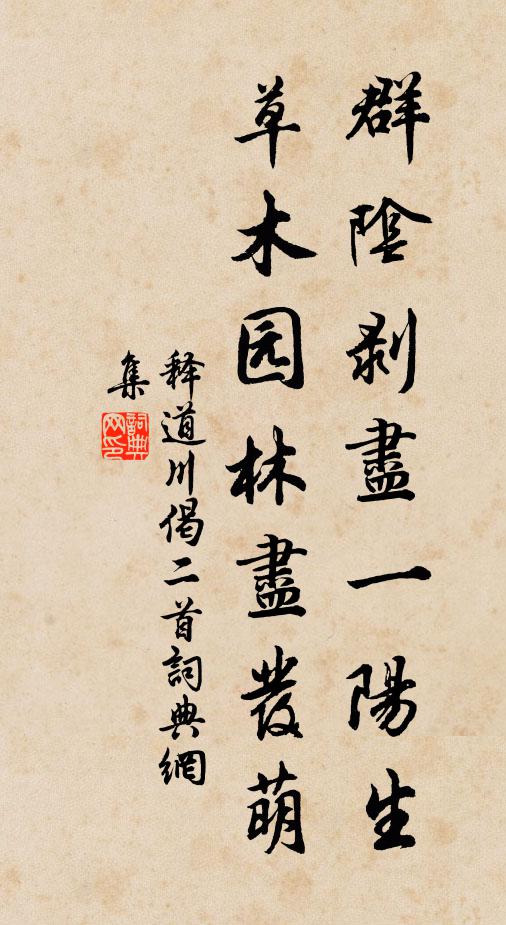 群陰剥盡一陽生
草木园林盡發萌
释道川偈二首詞典網
集
詞典
网印